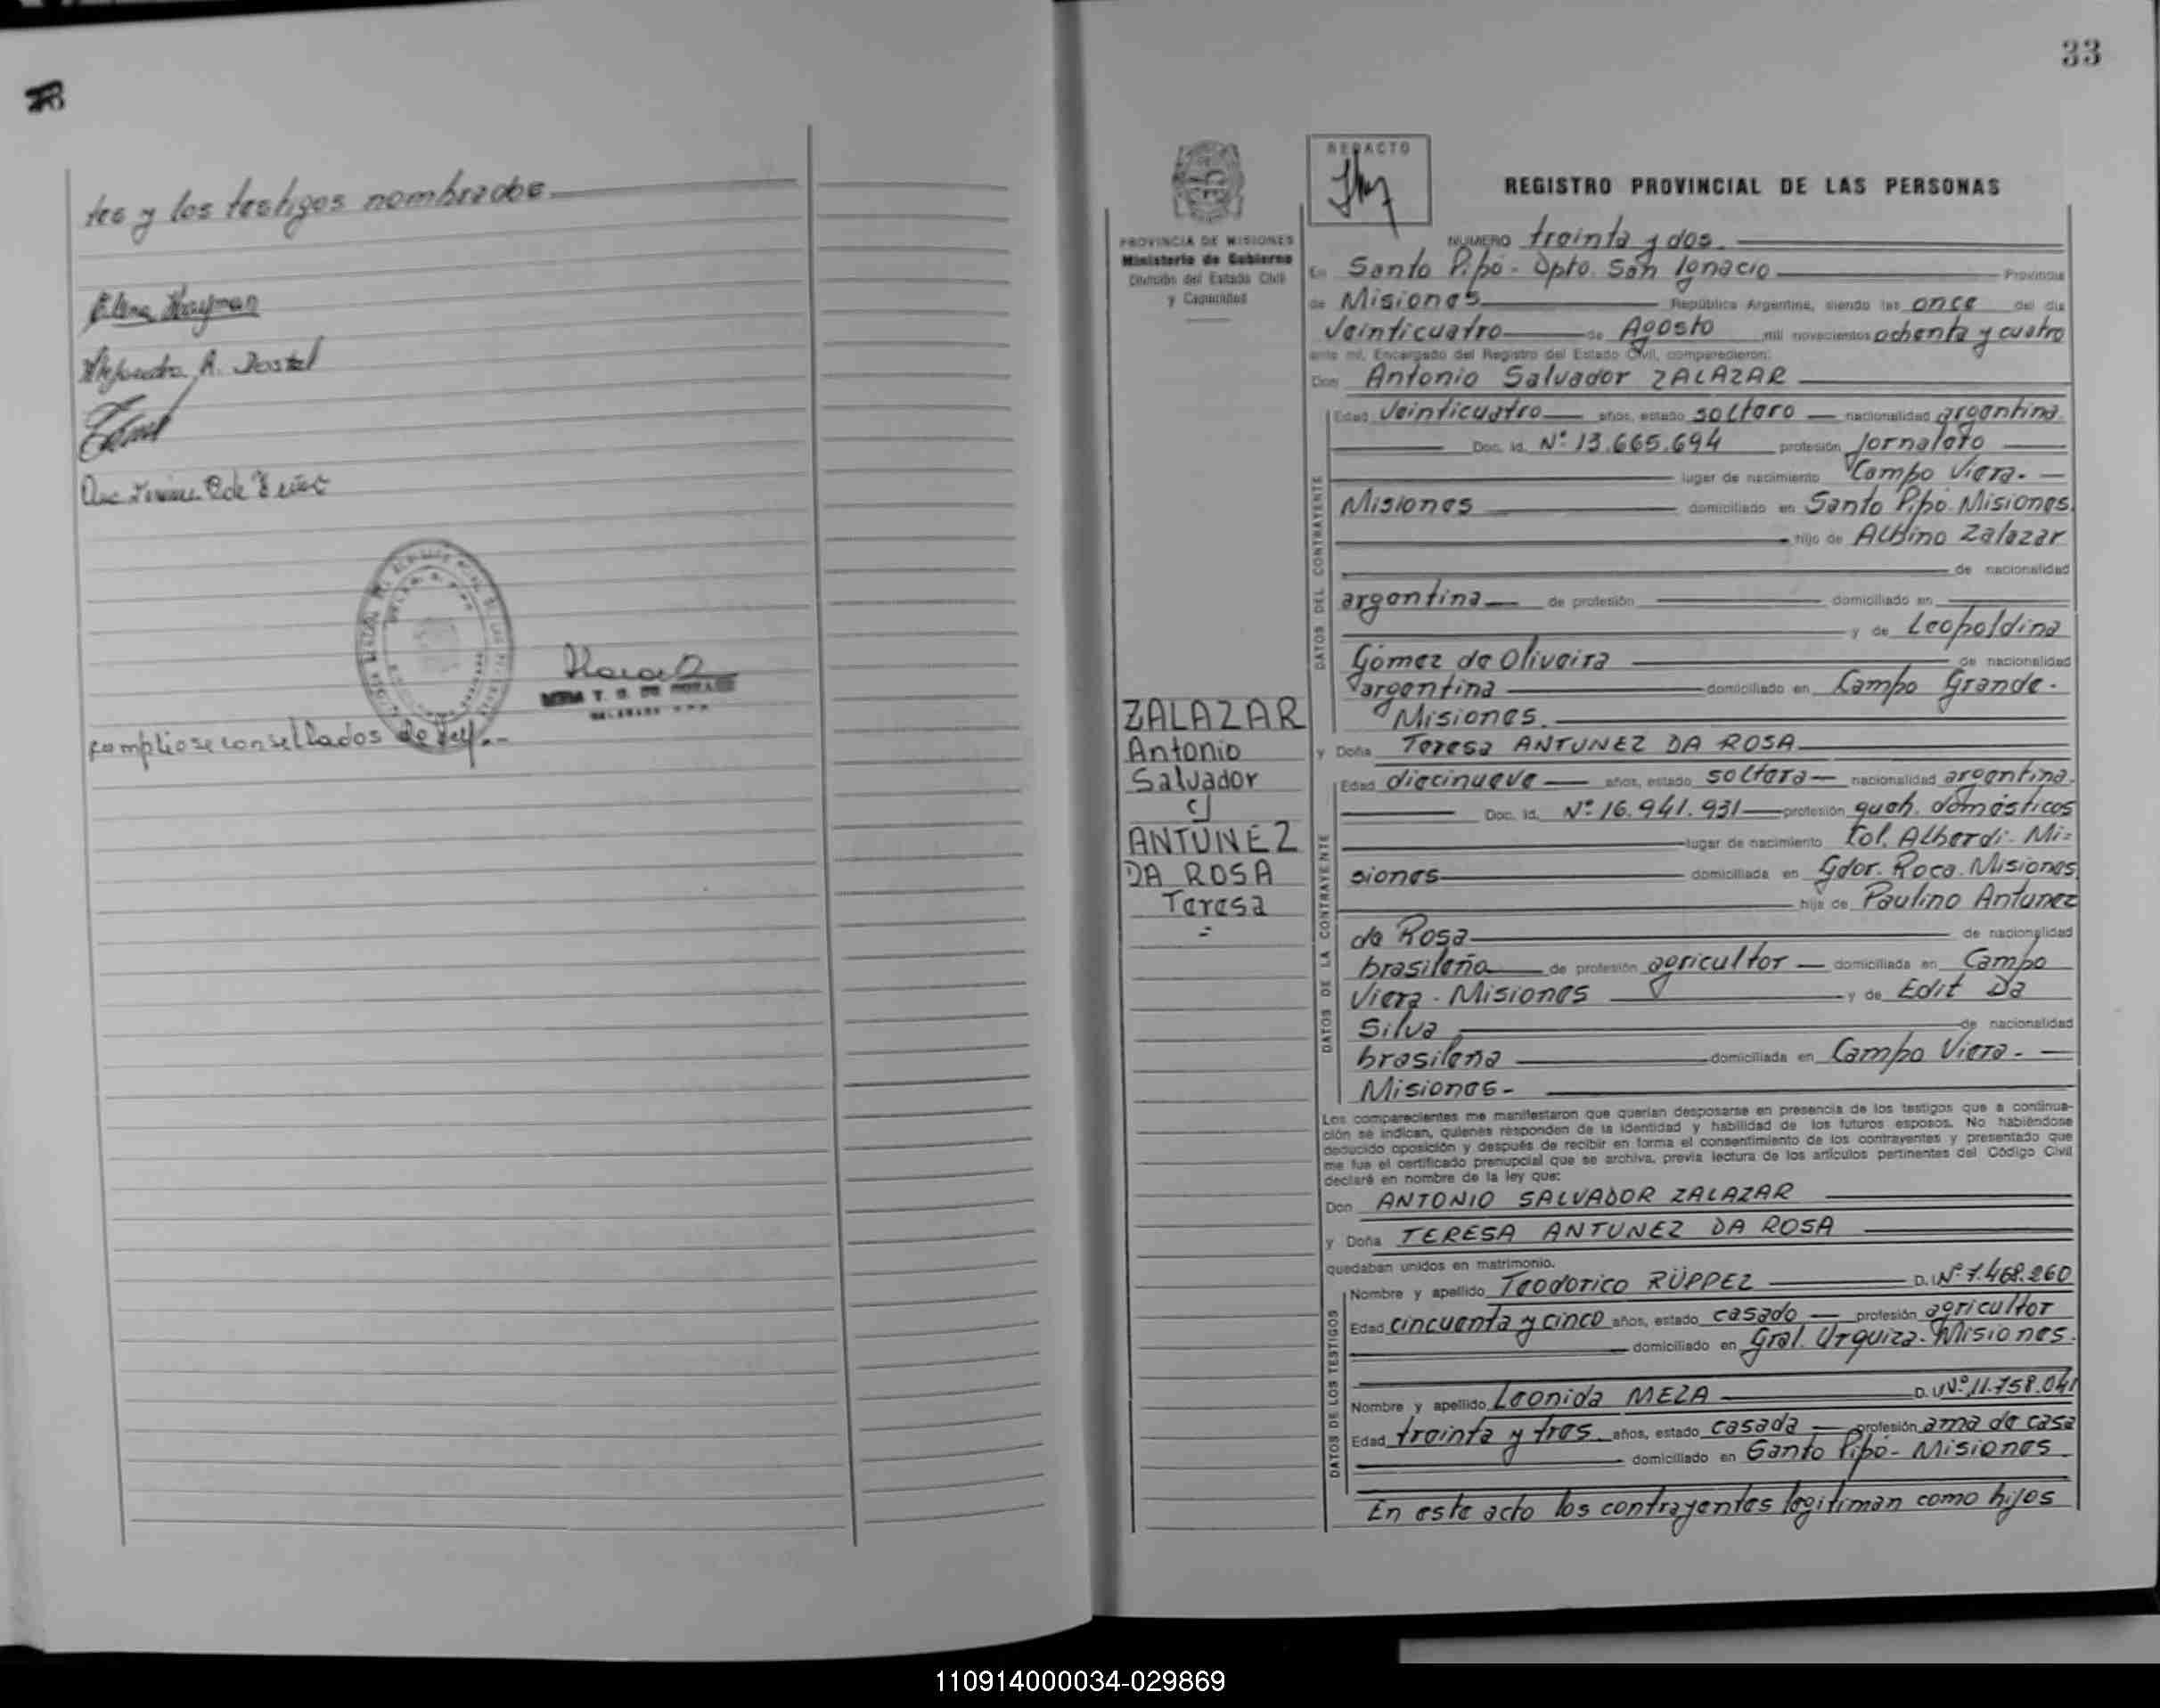 tes y los testigos nombrados.
Elena
Alejandra A.
cumpliose con sellados de Ley.-
33
REDACTO
REGISTRO PROVINCIAL DE LAS PERSONAS
PROVINCIA DE MISIONES
Ministerio de Gobierno
División del Estado Civil
y Capacidad
NUMERO treinta y dos.
En Santo Pipó - Dpto. San Ignacio Provincia
de Misiones República Argentina, siendo las once del día
Veinticuatro de Agosto mil novecientos ochenta y cuatro
ante mí, Encargado del Registro del Estado Civil, comparecieron:
Don Antonio Salvador ZALAZAR
DATOS DEL CONTRAYENTE
Edad Veinticuatro años, estado soltero nacionalidad argentina.
Doc. Id. Nº 13.665.694 profesión Jornalero
lugar de nacimiento Campo Viera.
Misiones domiciliado en Santo Pipó. Misiones
hijo de Albino Zalazar
de nacionalidad
argentina de profesión domiciliado en
y de Leopoldina
Gómez de Oliveira de nacionalidad
argentina domiciliado en Campo Grande.
Misiones.
ZALAZAR
Antonio
Salvador
c/
ANTUNEZ
DA ROSA
Teresa
=
y Doña Teresa ANTUNEZ DA ROSA
DATOS DE LA CONTRAYENTE
Edad diecinueve años, estado soltera nacionalidad argentina.
Doc. Id. Nº 16.941.931 profesión queh. domésticos
lugar de nacimiento Col. Alberdi. Mi=
siones domiciliada en Gdor. Roca. Misiones
hija de Paulino Antunez
da Rosa de nacionalidad
brasileña de profesión agricultor domiciliada en Campo
Viera - Misiones y de Edit Da
Silva de nacionalidad
brasileña domiciliada en Campo Viera.
Misiones-
Los comparecientes me manifestaron que querían desposarse en presencia de los testigos que a continua-
ción se indican, quienes responden de la identidad y habilidad de los futuros esposos. No habiéndose
deducido oposición y después de recibir en forma el consentimiento de los contrayentes y presentado que
me fue el certificado prenupcial que se archiva, previa lectura de los artículos pertinentes del Código Civil
declaré en nombre de la ley que:
Don ANTONIO SALVADOR ZALAZAR
y Doña TERESA ANTUNEZ DA ROSA
quedaban unidos en matrimonio.
DATOS DE LOS TESTIGOS
Nombre y apellido Teodorico RÜPPEL D. I. Nº 7.468.260
Edad cincuenta y cinco años, estado casado profesión agricultor
domiciliado en Gral. Urquiza. Misiones.
Nombre y apellido Leonida MEZA D. I. Nº 11.758.041
Edad treinta y tres años, estado casada profesión ama de casa
domiciliado en Santo Pipó - Misiones
En este acto los contrayentes legitiman como hijos
110914000034-029869